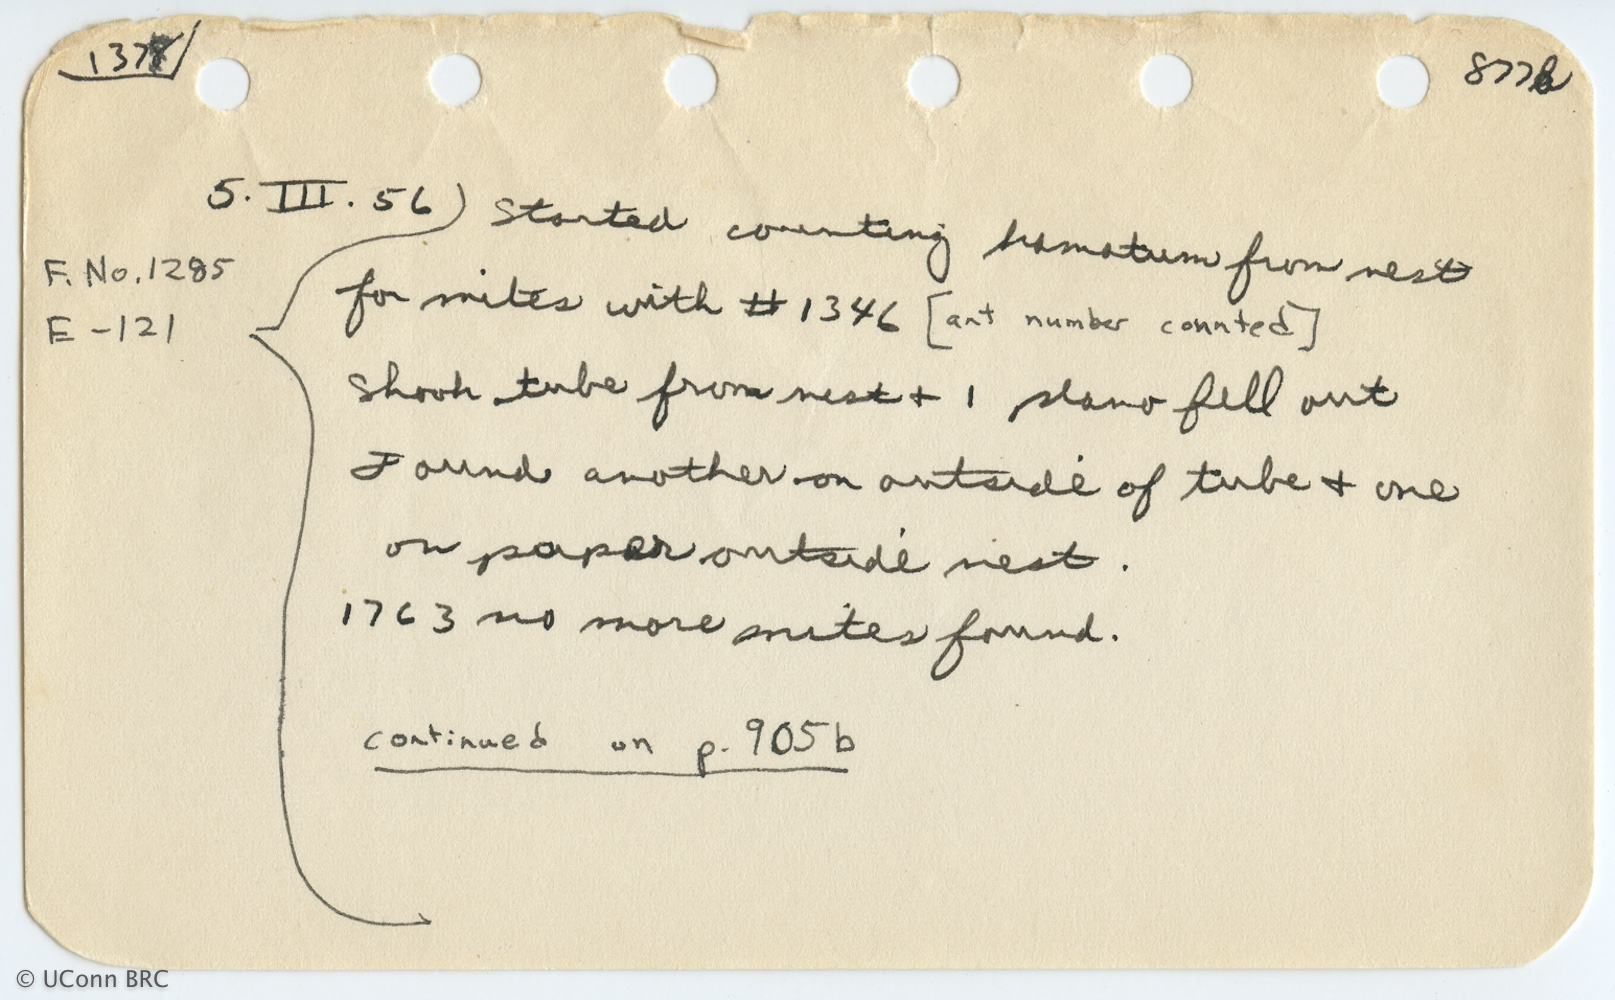 137
877b
5. III. 56) Started counting hamatum from nest
F. No. 1285
for mites with # 1346 [ant number counted]
E - 121
Shook tube from nest + 1 fell out
Found another on outside of tube + one
on paper outside nest.
1763 no more mites found.
continued on p. 905b
© UConn BRC